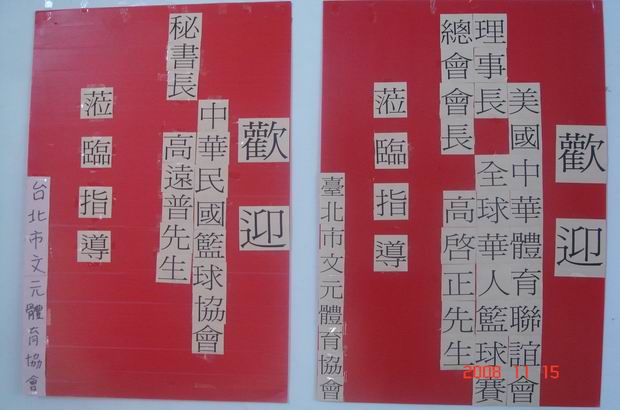 歡迎
中華民國籃球協會
秘書長 高遠普先生
蒞臨指導
台北市文元體育協會
歡迎
美國中華體育聯誼會
理事長 全球華人籃球賽
總會會長 高啓正先生
蒞臨指導
臺北市文元體育協會
2008 11 15